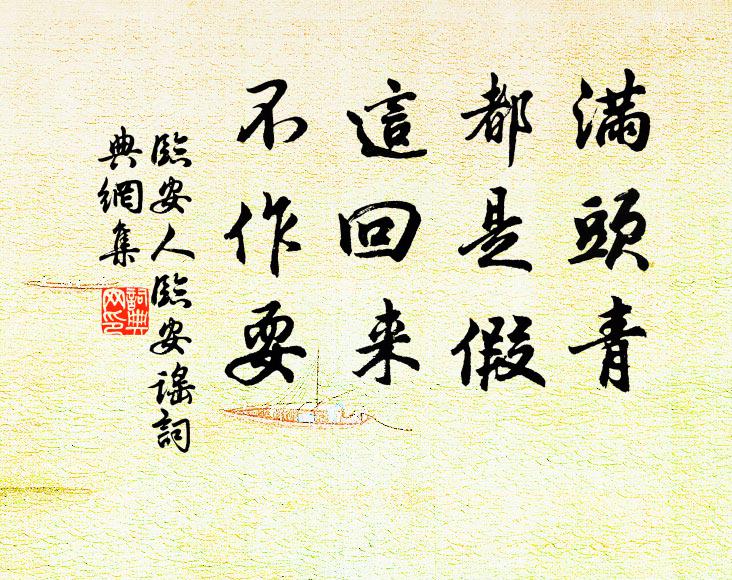 滿頭青
都是假
這回来
不作耍
臨安人臨安謠詞
典網集
詞典
网印